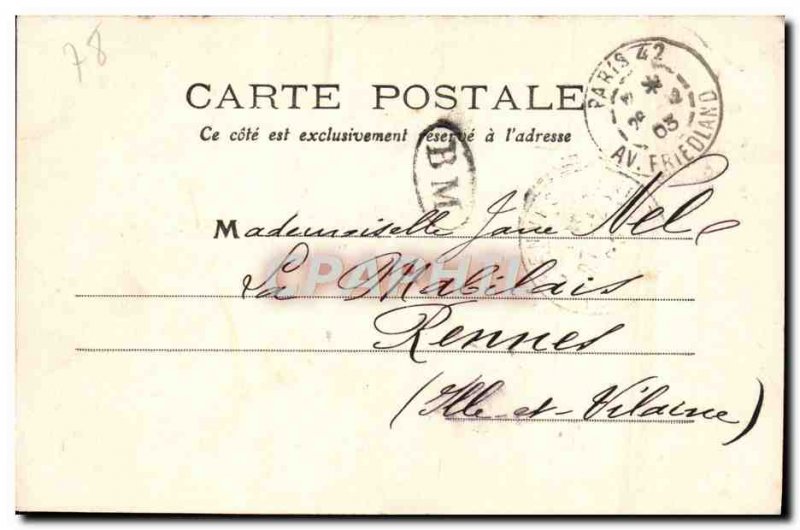 78
PARIS 42
03
AV. FRIEDLAND
CARTE POSTALE
Ce côté est exclusivement réservé à l'adresse
BM
Mademoiselle Jane Nel
La Mabilais
CPARHIL
Rennes
(Ille-et-Vilaine)